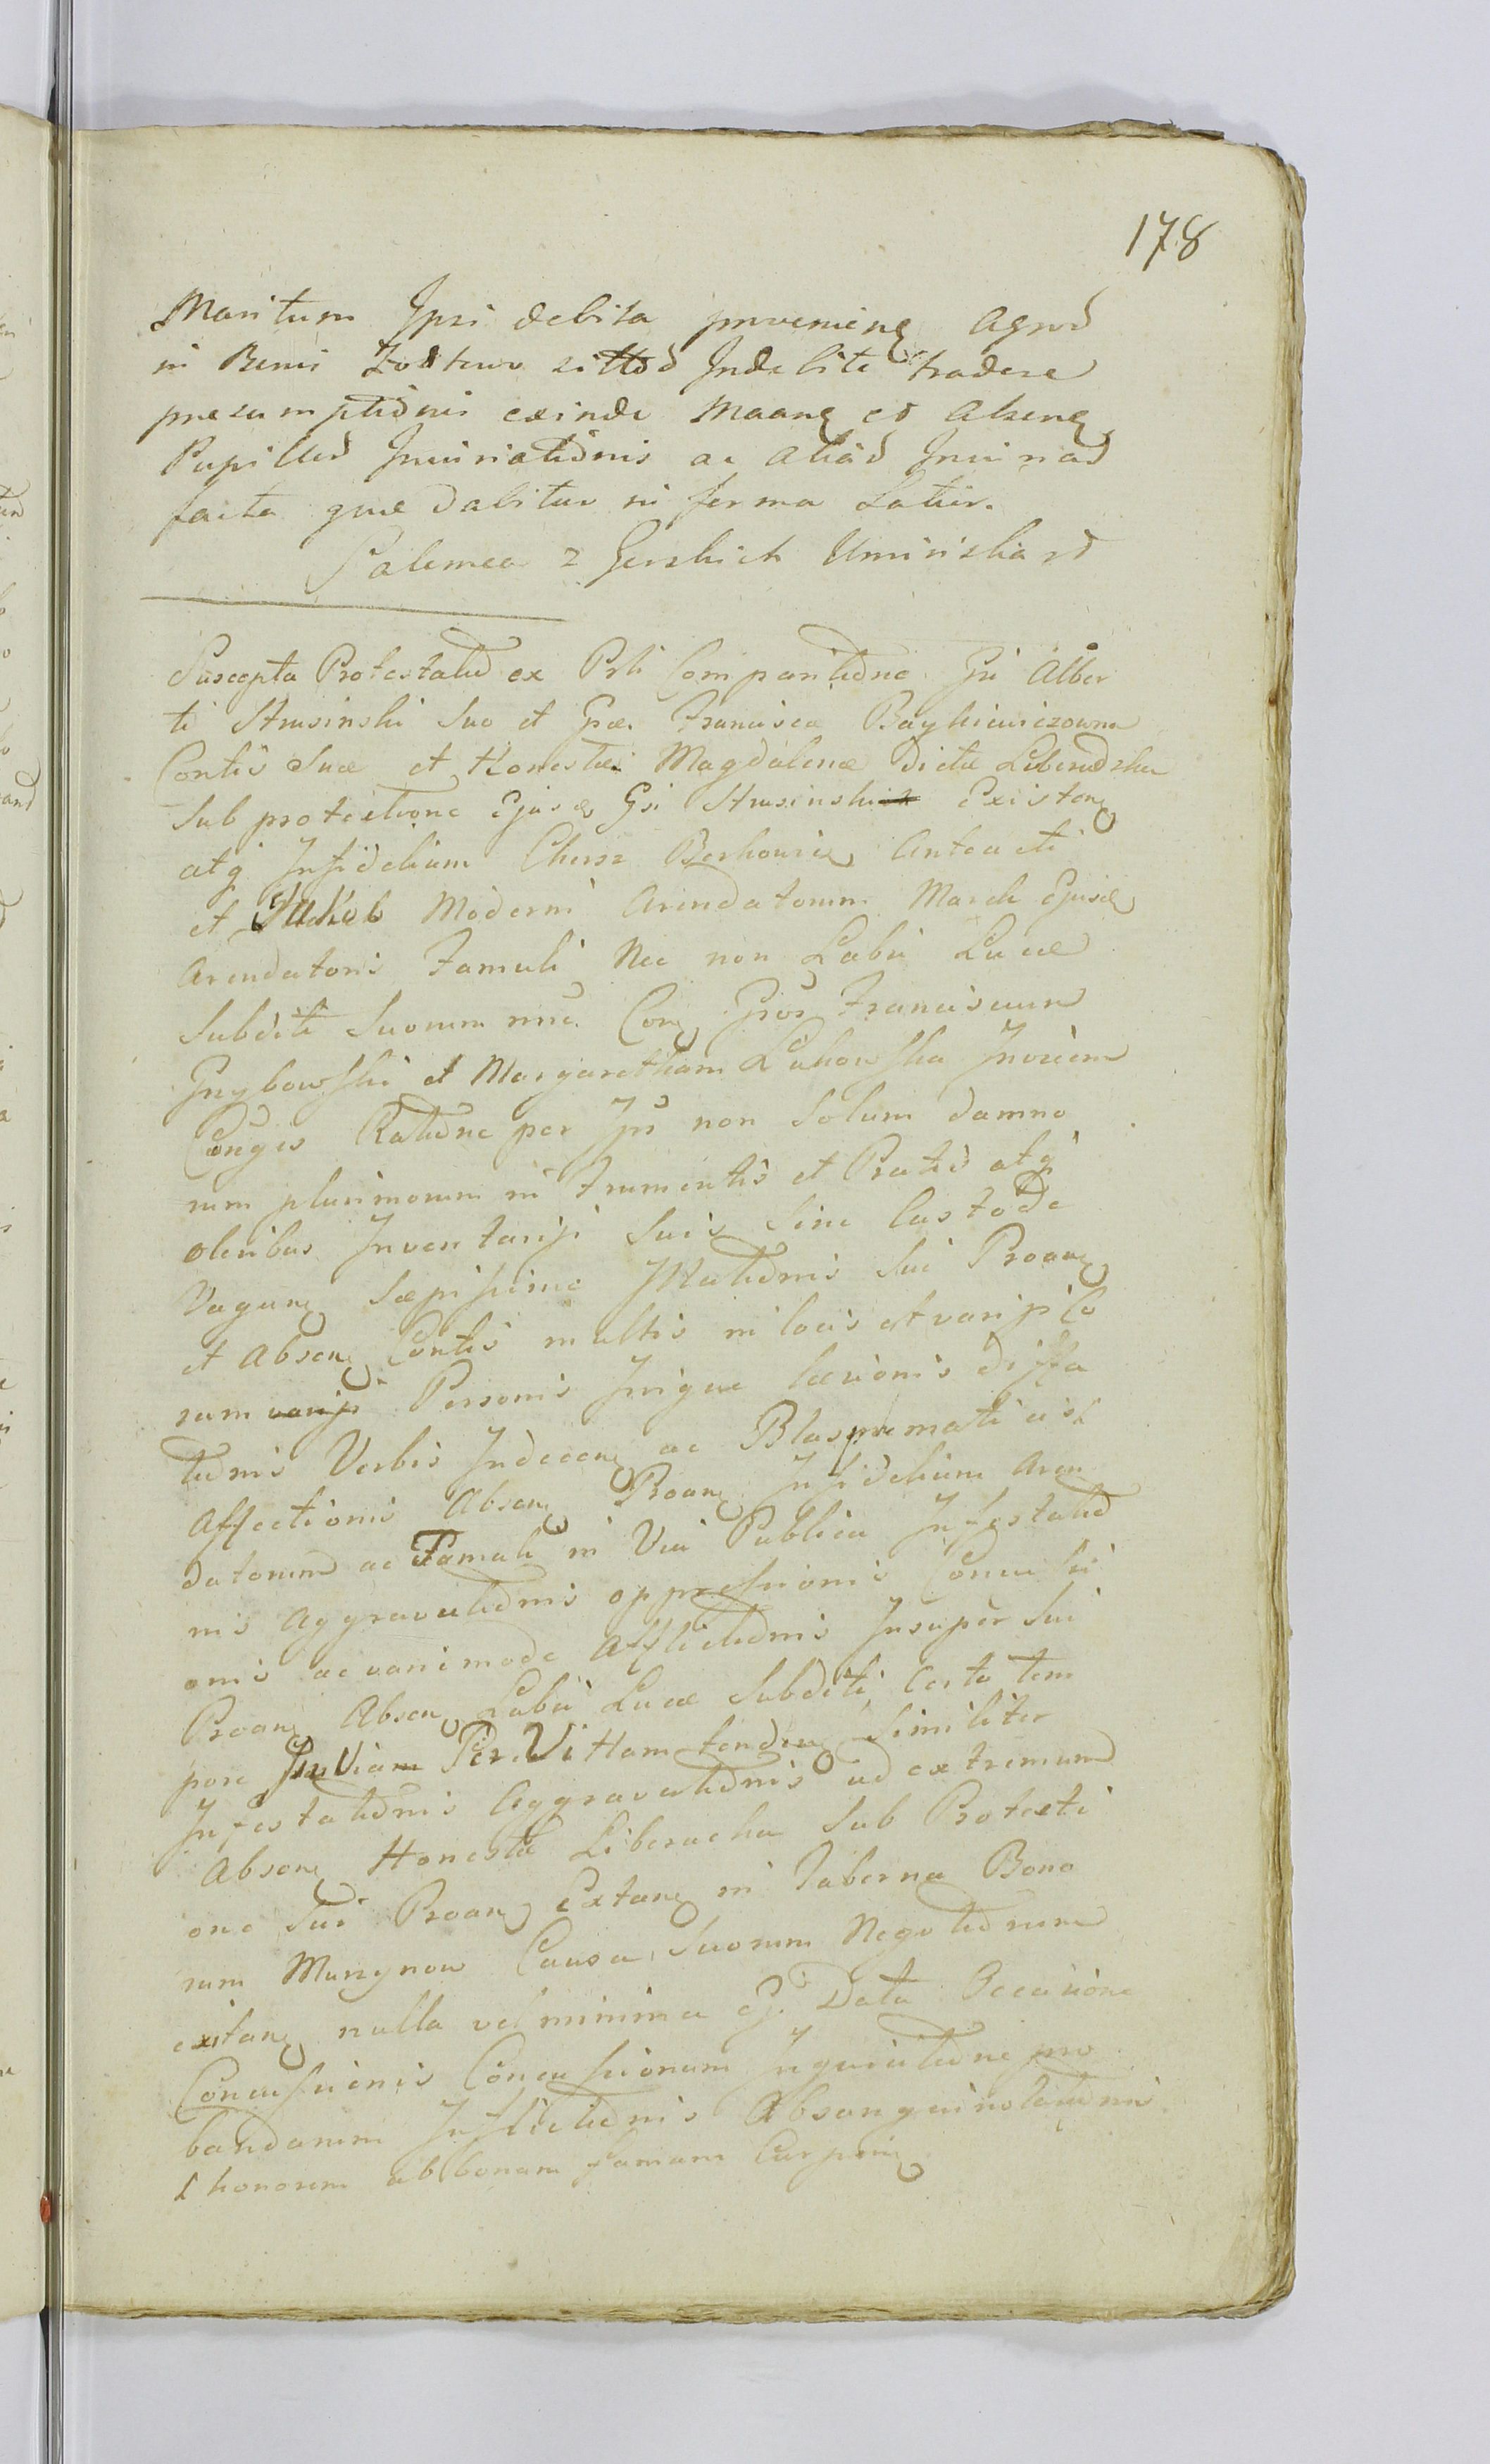 178
Maritum Ipsi debita provenieng Agnd
in Bonis Zostow sittod Indebite tradere
presumptidnis exinde Maang et Abseng
Pupilled Iniuriatidnis ac aliad Iniuriad
facta que dabitur in forma Latiir.
Salomea z Gorskich Uminiska
Suscepta Protestatid ex Prli Comparitidne Gsi Alber
ti Strusinski Suo et Gsae. Francisca Baykiewiczowna
Contis Suae et Honestae Magdalenae dictae
Sub protectione Ejusd Gsi Strusinski Existeng
atq Infidelium Chersz Berkowicz Anteacti
et Jakob Moderni Arendatorum Marek Ejusd
Arendatoris Famuli Nec non Labii Lucae
Subditi Suorum nne. Con Gsos Franciscum
Grzybowski et Margaretham Lukowska Invicem
Congis Ratidne per Ips non Solum damno
rum plurimorum in Frumentis et Pratis atq
oleribus Inventarijs Suis Sine Custode
Vagang Saepissime Illatidnis Sui Proang
et Abseng Contis multis in locis et varijs Co
ram Personis Inique laesionis diffa
tidnis Verbis Indeceng ac Blasphematicis
Affectionis Abseng Proang Infidelium Aren
datorum ac Famuli in Via Publica Infestatid
nis Aggravatidnis oppressionis Concussi
onis ac varimode Afflictidnis Insuper Sui
Proang Abseng Labii Lucae Subditi Certo tem
pore In Viam Per Vittam tendeng Similiter
Infestatidnis Aggravatidnis ad extremum
Abseng Honestae Liberacka Sub Protecti
one Sui Proang Extang in Taberna Bono
rum Murzynow Causa Suorum Negotidrum
exitang nulla vel minima Ej. Data Occasione
Concussionis Concussionum Inquisitidne pro
bandarum Inflictidnis
honorem ab bonam famam Carpeng